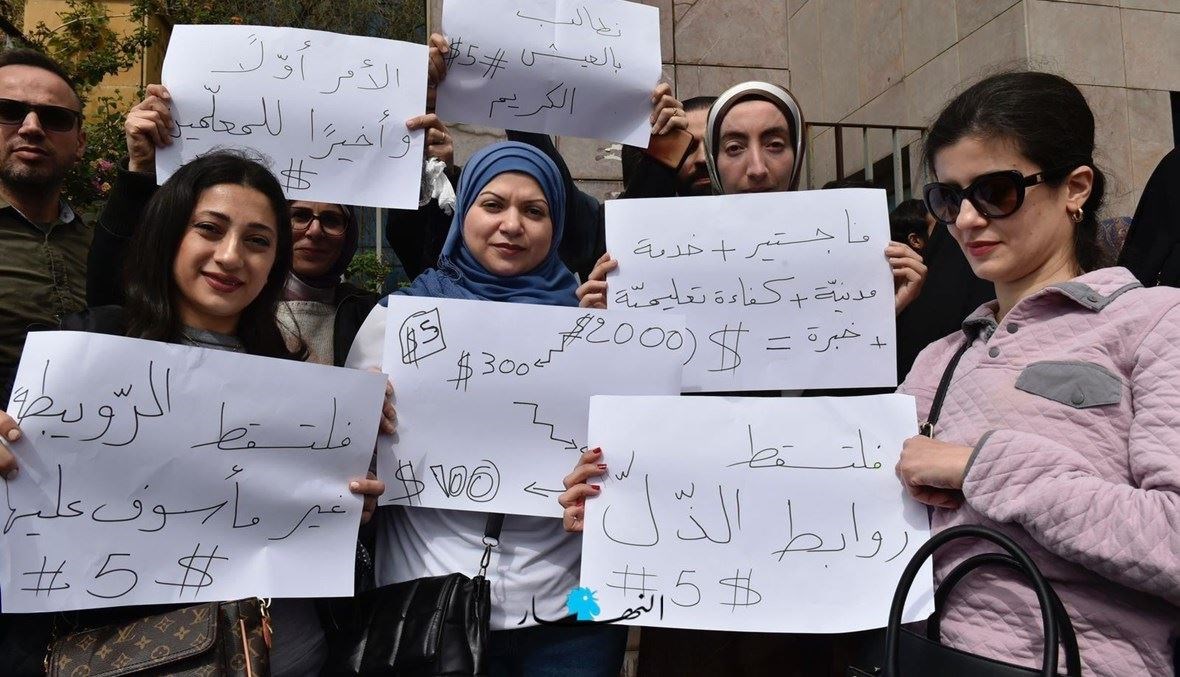 نطالب
بالعيش #5$
الكريم
الأمر أوّلاً
وأخيرًا للمعلّمين
$
ماجستير + خدمة
مدنيّة + كفاءة تعليميّة
+ خبرة = $
$5
$300
$2000
$100
فلتسقط الرّويبطة
غير مأسوف عليها
#5$
فلتسقط
روابط الذّلّ
#5$
النهار